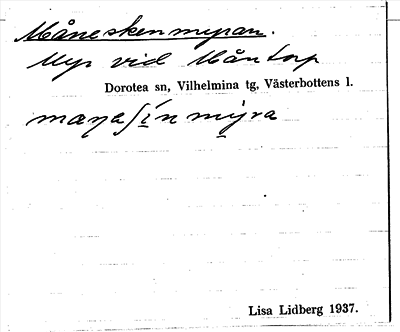 Måneskenmyran.
Myr vid Måntorp
Dorotea sn, Vilhelmina tg, Västerbottens l.
Lisa Lidberg 1937.